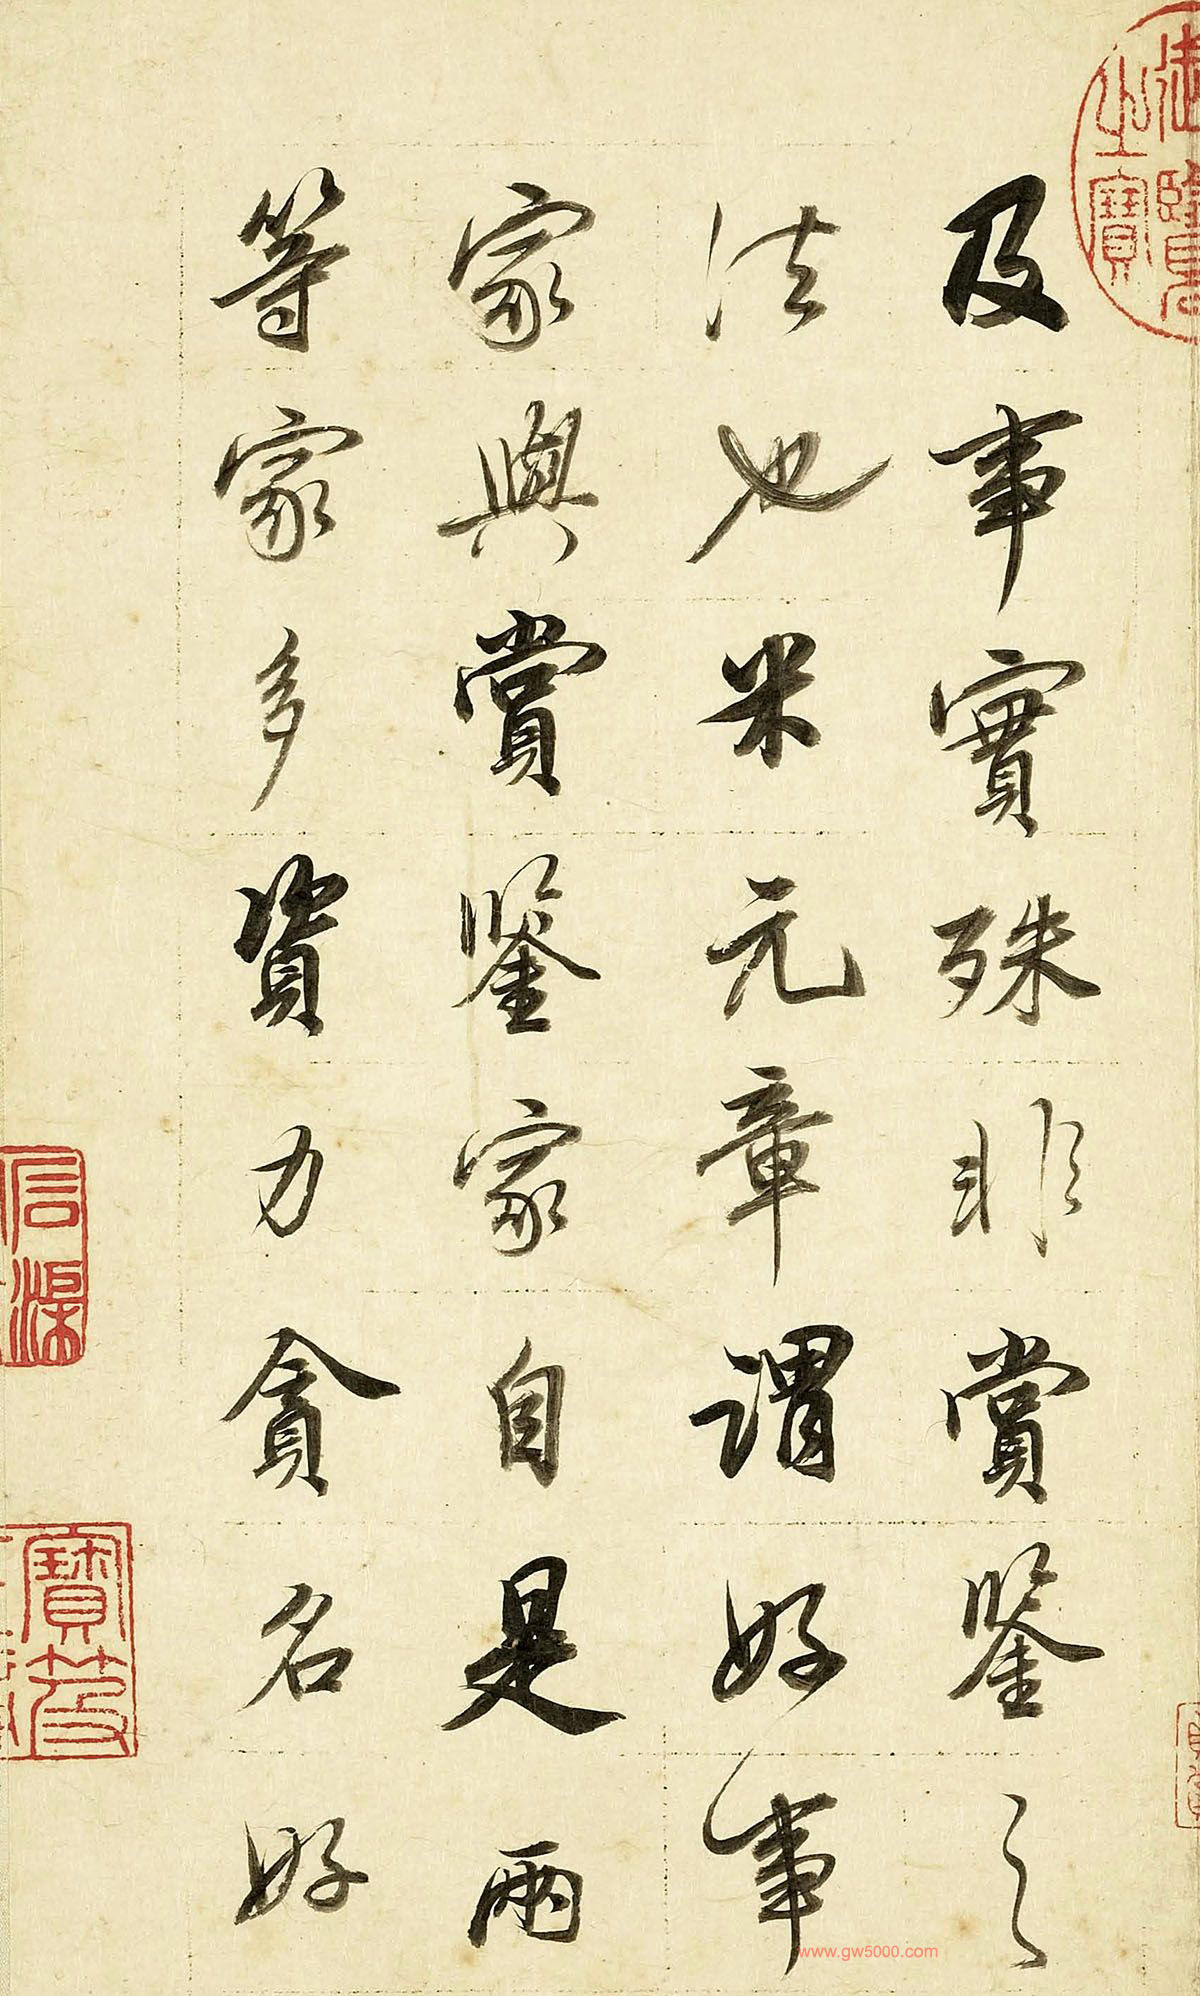 及事實殊非賞鑒之
法也米元章謂好事
家與賞鑒家自是兩
等家多資力貪名好
御覽之寶
寶笈
www.gw5000.com